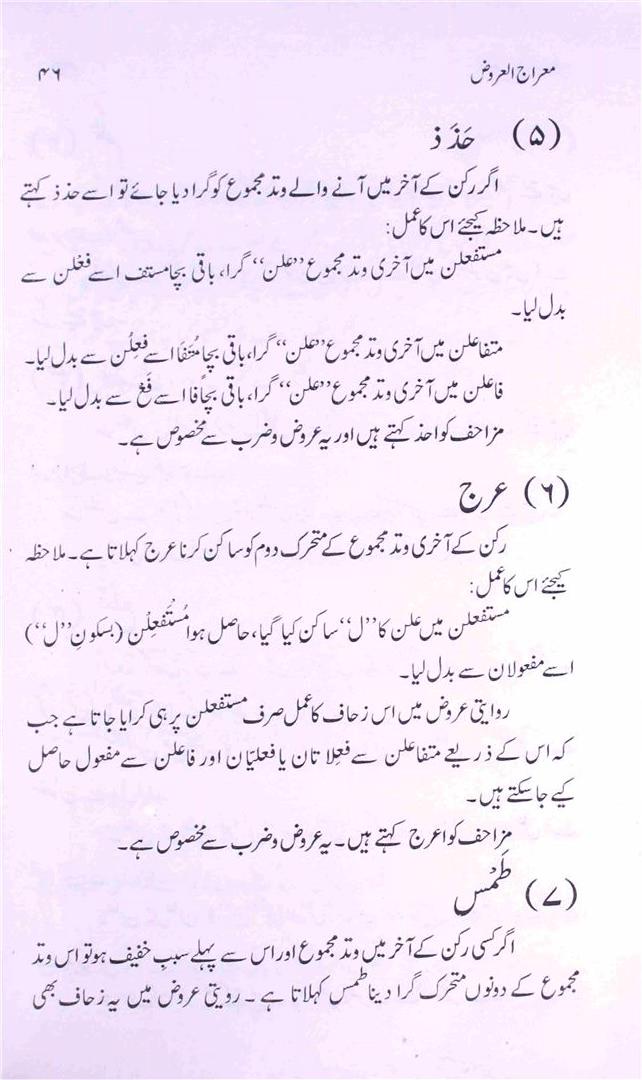 معراج العروض
۴۶
(۵) حَذَذ
اگر رکن کے آخر میں آنے والے وتد مجموع کو گرا دیا جائے تو اسے حذذ کہتے
ہیں۔ ملاحظہ کیجئے اس کا عمل:
مستفعلن میں آخری وتد مجموع ”علن“ گرا، باقی بچا مستف اسے فعْلن سے
بدل لیا۔
متفاعلن میں آخری وتد مجموع ”علن“ گرا، باقی بچا مُتَفَا اسے فعِلُن سے بدل لیا۔
فاعلن میں آخری وتد مجموع ”علن“ گرا، باقی بچا فا اسے فَع سے بدل لیا۔
مزاحف کو احذ کہتے ہیں اور یہ عروض و ضرب سے مخصوص ہے۔
(۶) عرج
رکن کے آخری وتد مجموع کے متحرک دوم کو ساکن کرنا عرج کہلاتا ہے۔ ملاحظہ
کیجئے اس کا عمل:
مستفعلن میں علن کا ”ل“ ساکن کیا گیا، حاصل ہوا مُسْتَفْعِلْن (بسکونِ ”ل“)
اسے مفعولان سے بدل لیا۔
روایتی عروض میں اس زحاف کا عمل صرف مستفعلن پر ہی کرایا جاتا ہے جب
کہ اس کے ذریعے متفاعلن سے فعِلاتان یا فعلیّان اور فاعلن سے مفعول حاصل
کیے جا سکتے ہیں۔
مزاحف کو اعرج کہتے ہیں۔ یہ عروض و ضرب سے مخصوص ہے۔
(۷) طَمْس
اگر کسی رکن کے آخر میں وتد مجموع اور اس سے پہلے سببِ خفیف ہو تو اس وتد
مجموع کے دونوں متحرک گرا دینا طمس کہلاتا ہے۔ رویتی عروض میں یہ زحاف بھی